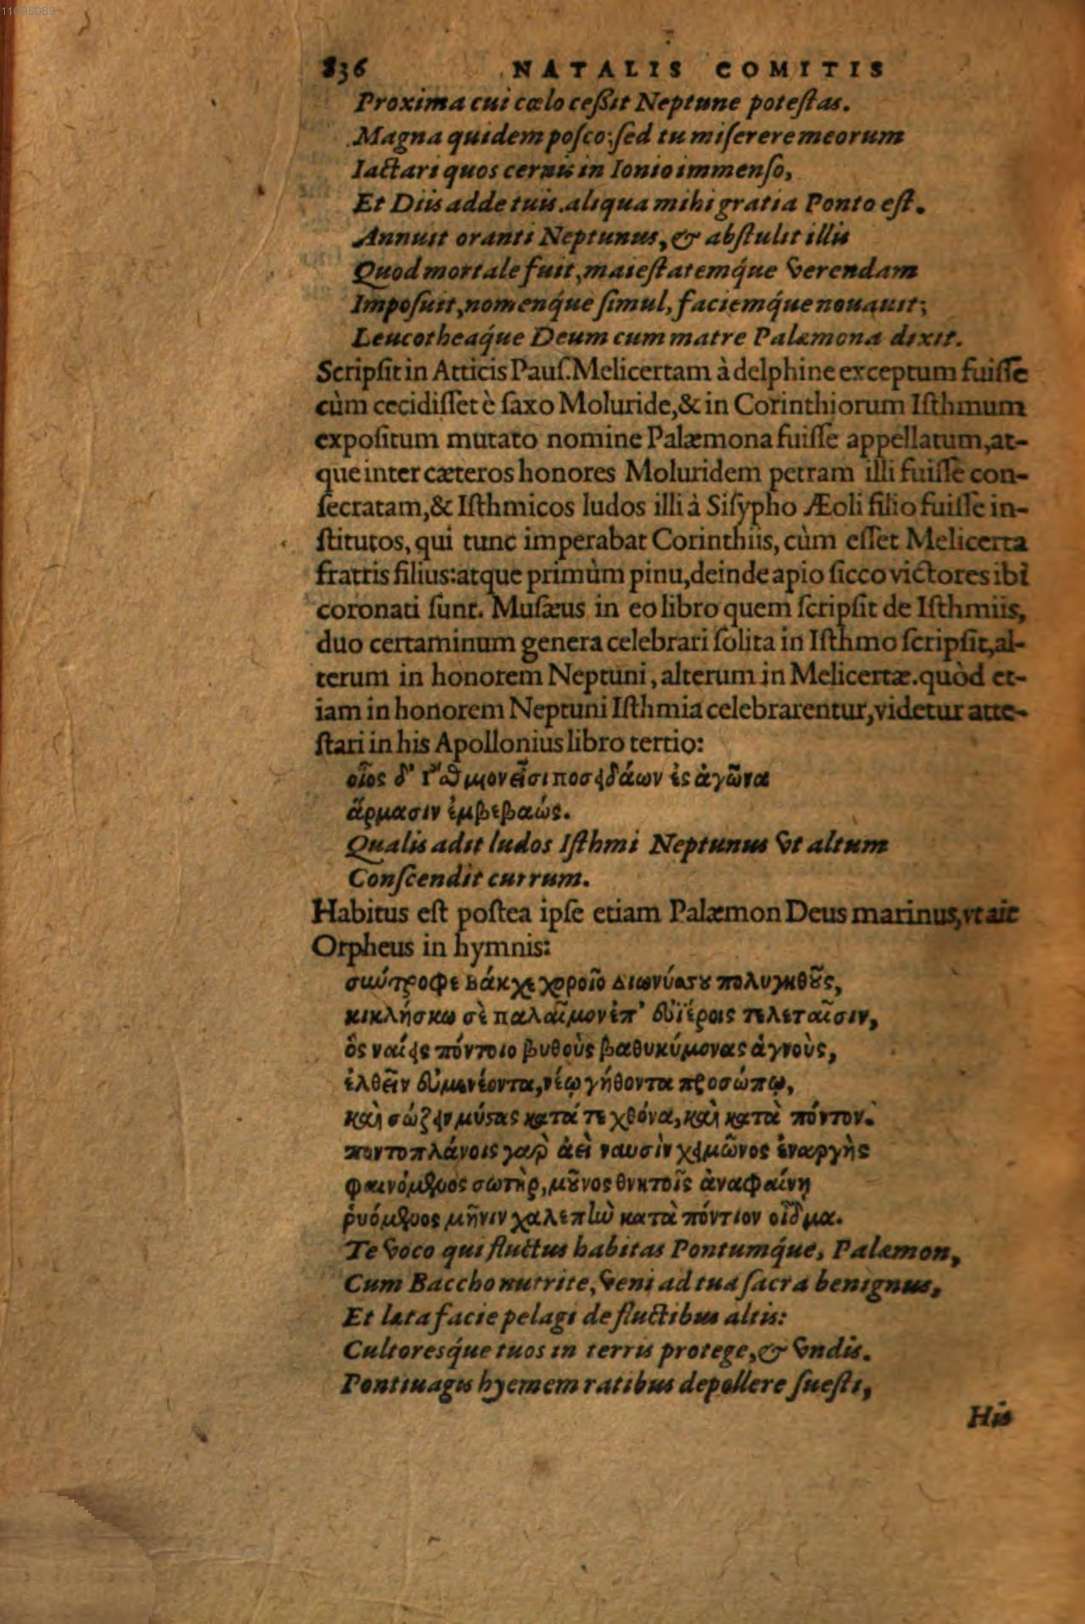 11023089
836 NATALIS COMITIS
Proxima cui cœlo ceßit Neptune poteſtas.
Magna quidem poſco: ſed tu miſerere meorum
Iactari quos cernis in Ionio immenſo,
Et Diis adde tuis. aliqua mihi gratia Ponto eſt.
Annuit oranti Neptunus, & abſtulit illis
Quod mortale fuit, maieſtatemq́ue verendam
Impoſuit, nomenq́ue ſimul, faciemq́ue nouauit;
Leucotheaq́ue Deum cum matre Palæmona dixit.
Scripſit in Atticis Pauſ. Melicertam à delphine exceptum fuiſſe
cùm cecidiſſet è ſaxo Moluride, & in Corinthiorum Iſthmum
expoſitum mutato nomine Palæmona fuiſſe appellatum, at-
que inter cæteros honores Moluridem petram illi fuiſſe con-
ſecratam, & Iſthmicos ludos illi à Siſypho Æoli filio fuiſſe in-
ſtitutos, qui tunc imperabat Corinthiis, cùm eſſet Melicerta
fratris filius: atque primùm pinu, deinde apio ſicco victores ibi
coronati ſunt. Muſæus in eo libro quem ſcripſit de Iſthmiis,
duo certaminum genera celebrari ſolita in Iſthmo ſcripſit, al-
terum in honorem Neptuni, alterum in Melicertæ. quòd et-
iam in honorem Neptuni Iſthmia celebrarentur, videtur atte-
ſtari in his Apollonius libro tertio:
οἷος δ' Ἴσθμιον εἶσι ποσειδάων ἐς ἀγῶνα
ἅρμασιν ἐμβεβαώς.
Qualis adit ludos Iſthmi Neptunus vt altum
Conſcendit currum.
Habitus eſt poſtea ipſe etiam Palæmon Deus marinus, vt ait
Orpheus in hymnis:
σύντροφε βάκχε χοροῖο Διωνύσου πολυγηθοῦς,
κικλήσκω σὲ παλαῖμον ἐπ' εὐϊέροις τελεταῖσιν,
ὃς ναίεις πόντοιο βυθοὺς βαθυκύμονας ἁγνοὺς,
ἐλθεῖν εὐμενέοντα, νέῳ γήθοντα προσώπῳ,
καὶ σώζειν μύστας κατά τε χθόνα, καὶ κατὰ πόντον.
ποντοπλάνοις γὰρ ἀεὶ ναυσὶν χειμῶνος ἐναργὴς
φαινόμενος σωτὴρ, μοῦνος θνητοῖς ἀναφαίνῃ
ῥυόμενος μῆνιν χαλεπὴν κατὰ πόντιον οἶδμα.
Te voco qui fluctus habitas Pontumq́ue, Palæmon,
Cum Baccho nutrite, veni ad tua ſacra benignus,
Et læta facie pelagi de fluctibus altis:
Cultoresq́ue tuos in terris protege, & vndis.
Pontiuagis hyemem ratibus depellere ſueſti,
His